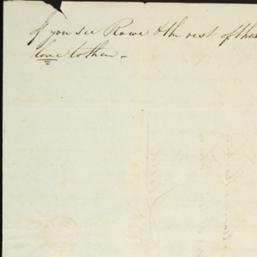 If you see Rowe & the rest of them
love to them -